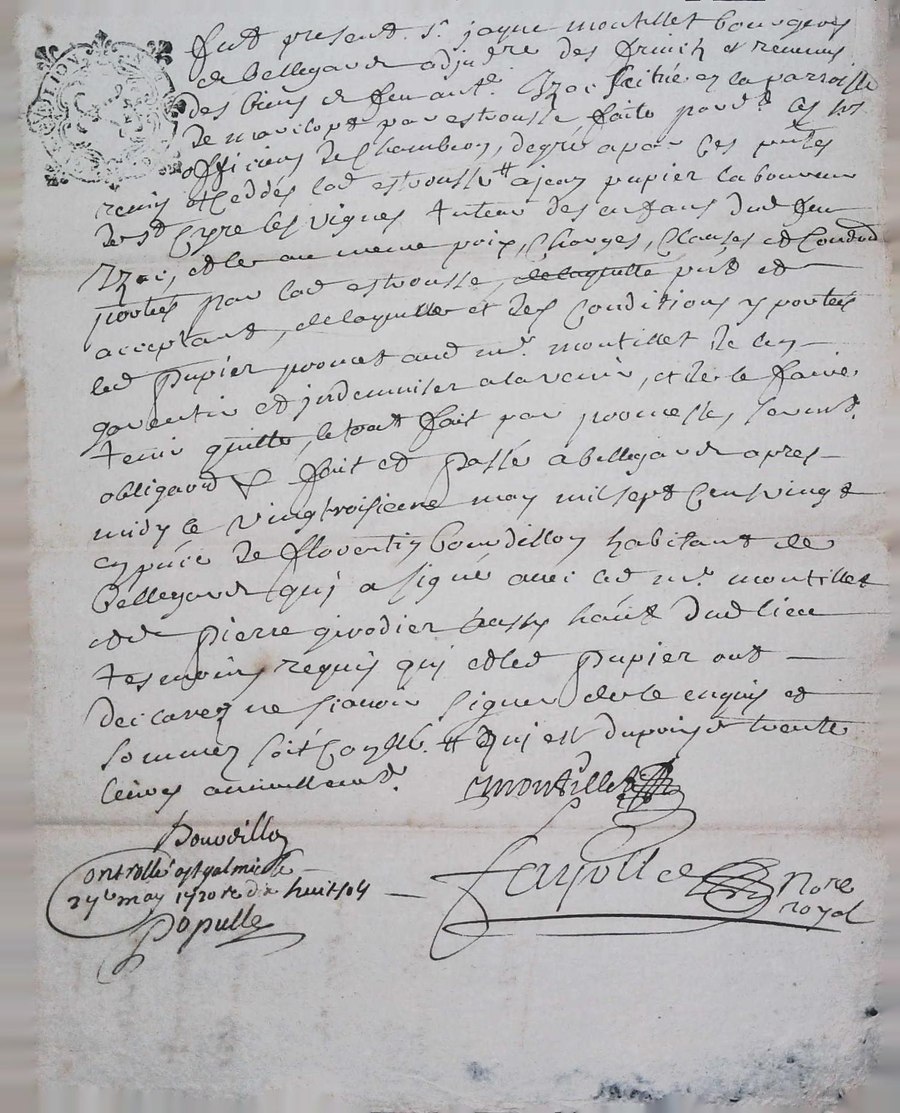 fut present sr. jayme montillet bourgeois
de Bellegarde adjudre des fruictz et revenus
des biens de feu ant. Izac scitué en la parroisse
de par estrousse faite pard. les srs
officiers de Chambeon, degré a par ces pntes
remis et ceddés lad estrousse # a jean papier laboureur
de st Cyre les vignes tuteur des enfans dud feu
Izac, et ce au meme prix, Charges, Clauses et Condõns
portés par lad estrousse, de laquelle pnt et
acceptant, de laquelle et des Conditions y portés
led papier promet aud mr. montillet de len
garentir et indemniser a lavenir, et de le faire
tenir quitte, le tout fait par promesse, sermt.
obligaõn & fait et passé a bellegarde apres
midy le vingtroisieme may mil sept cens vingt
en pñce de florentin Bourdillon habitant de
Bellegarde qui a signé avec led mr. montillet
et de pierre girodier aussy habt dud lieu
tesmoins requis qui et led papier ont
declarez ne scavoir signer de ce enquis et
sommez soit Conllé. # qui est du prix de trente
livres annuellemt.
montillet
Bourdillon
Controllé a st galmier le
24e may 1720 re dix huit s
Populle
not.re
royal